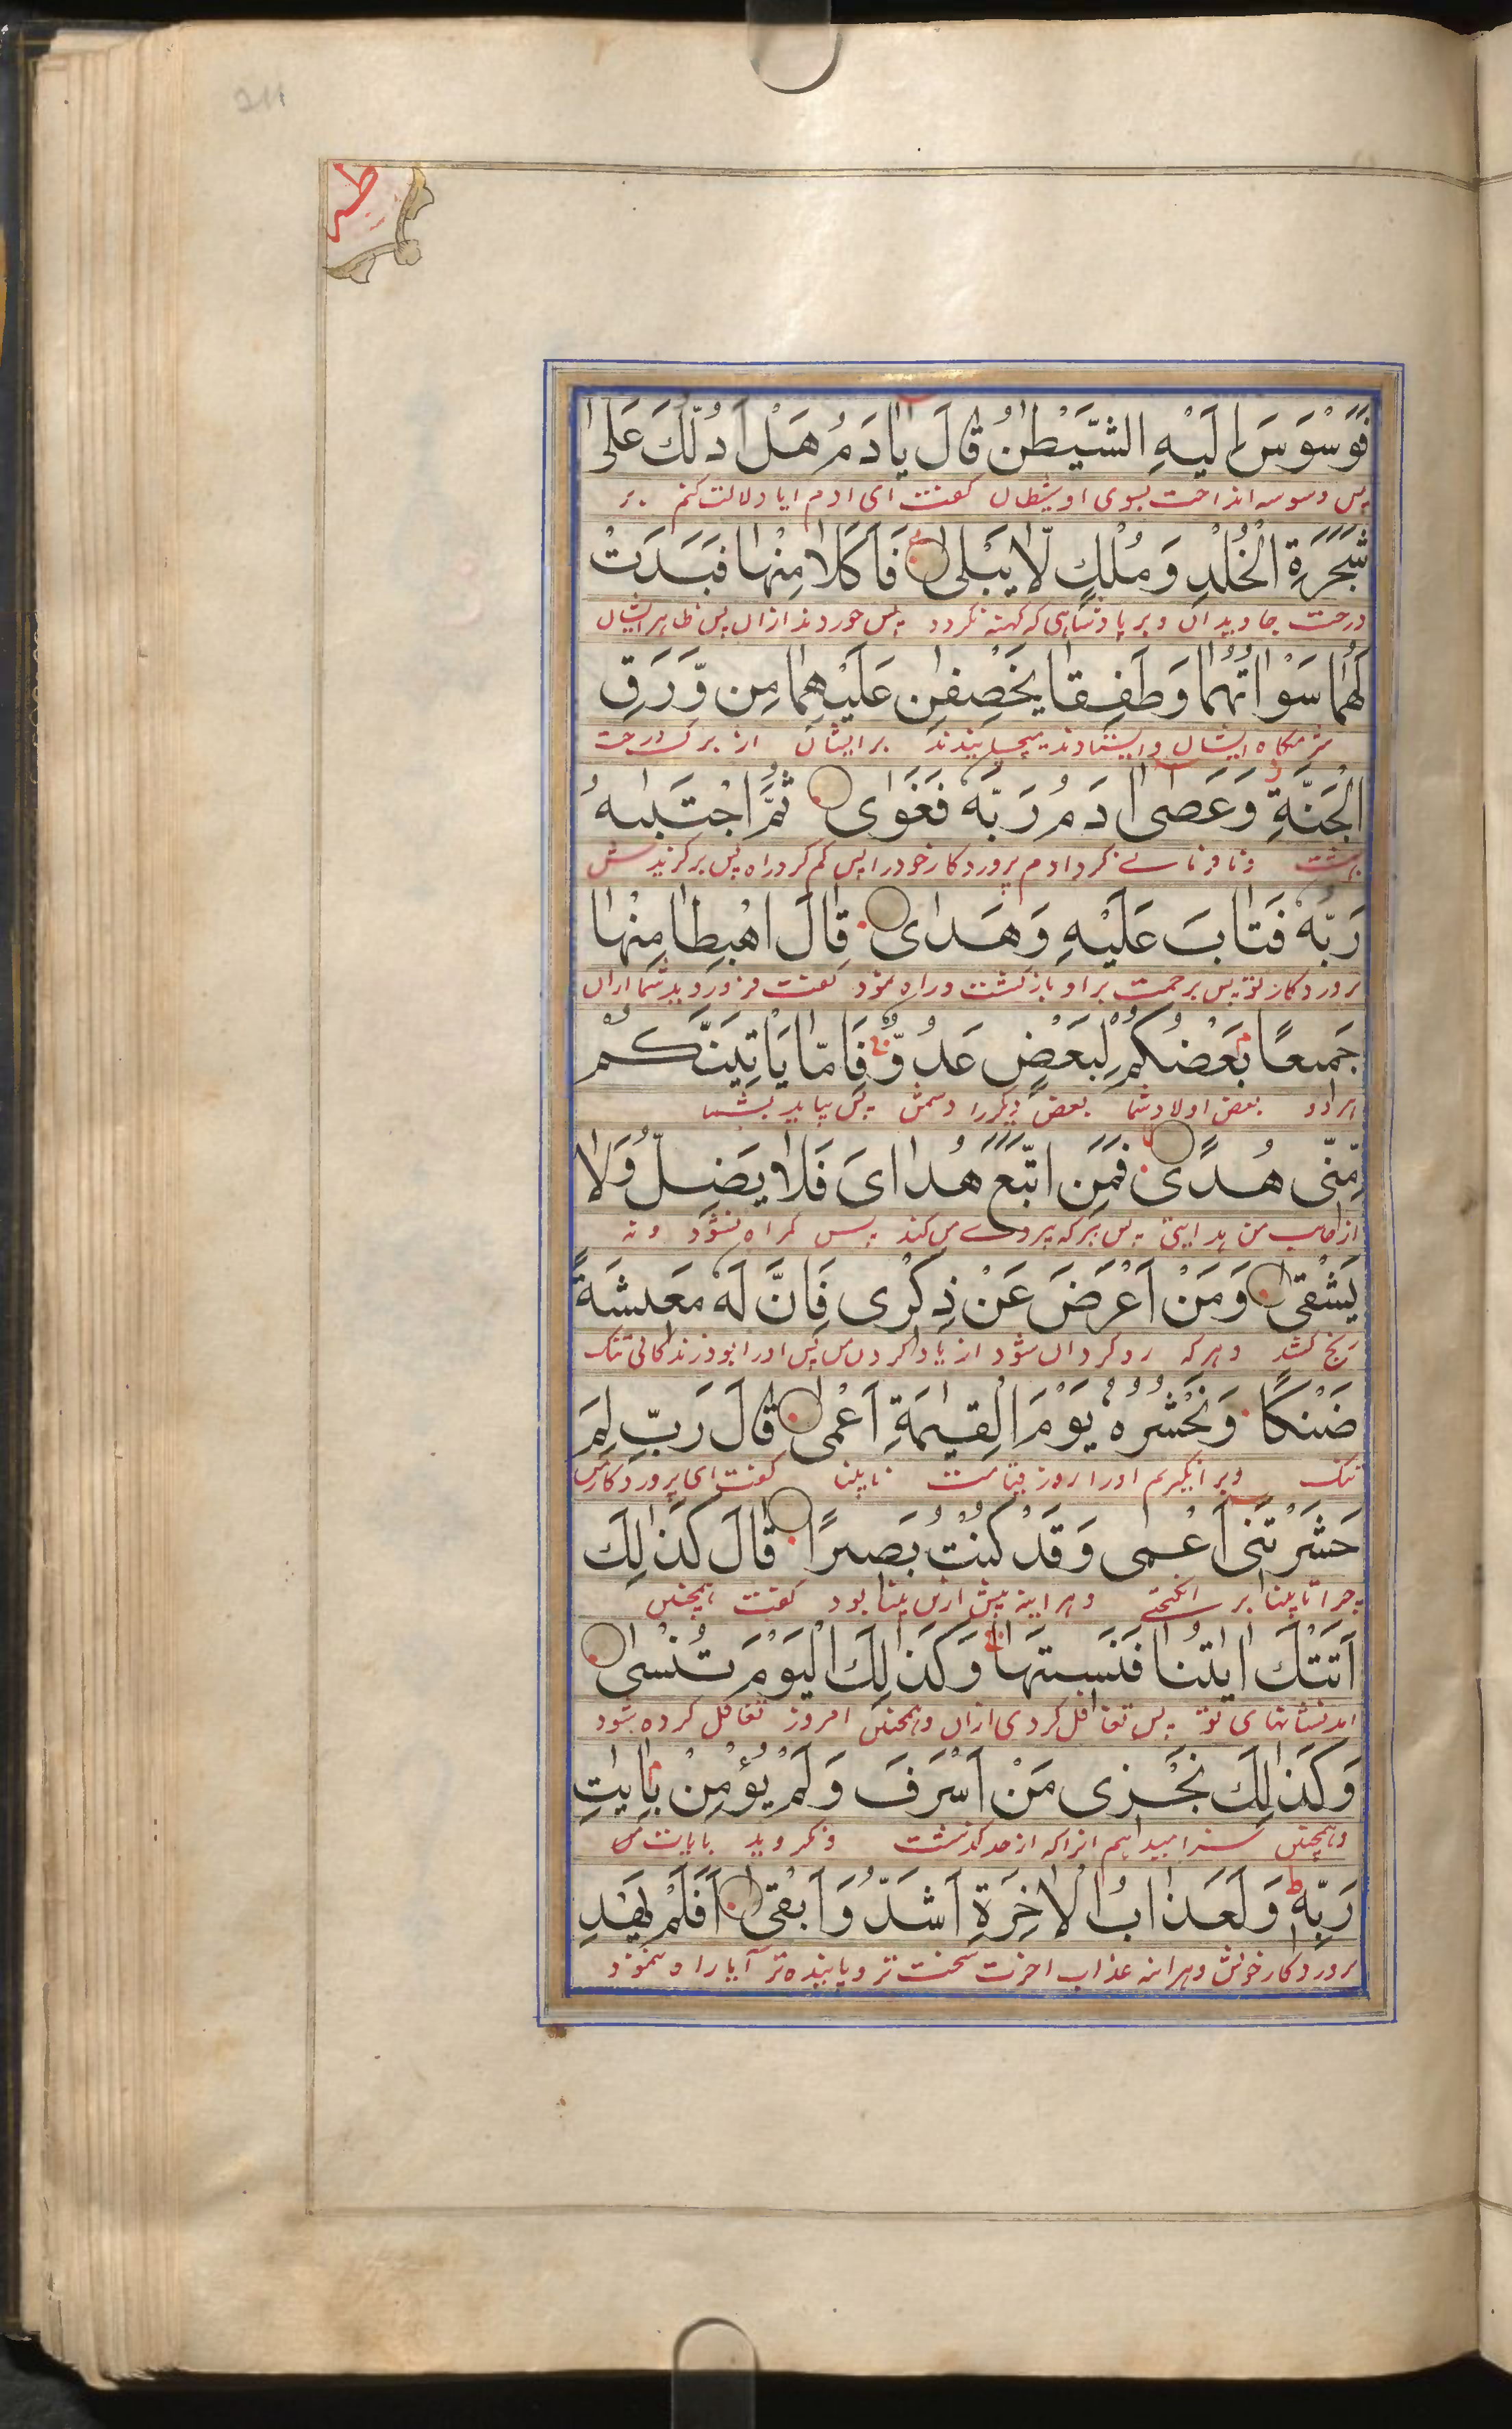 211
طه
فَوَسْوَسَ اِلَيْهِ الشَّيْطٰنُ قَالَ يٰادَمُ هَلْ اَدُلُّكَ عَلٰى
پس وسوسه انداخت بسوی او شیطان گفت ای ادم ایا دلالت کنم بر
شَجَرَةِ الْخُلْدِ وَمُلْكٍ لَّا يَبْلٰى فَاَكَلَا مِنْهَا فَبَدَتْ
درخت جاویدان و بر پادشاهی که کهنه نکردد پس خوردند ازان پس ظاهر ایشان
لَهُمَا سَوْاٰتُهُمَا وَطَفِقَا يَخْصِفٰنِ عَلَيْهِمَا مِن وَّرَقِ
شرمگاه ایشان و ایستادند میچسپانیدند برایشان از برک درخت
الْجَنَّةِ وَعَصٰى اٰدَمُ رَبَّهٗ فَغَوٰى ثُمَّ اجْتَبٰىهُ
بهشت و نافرمانی کرد ادم پروردکار خود را پس کم کرد راه پس برکزیدش
رَبُّهٗ فَتَابَ عَلَيْهِ وَهَدٰى قَالَ اهْبِطَا مِنْهَا
پروردکار تو پس برحمت بر او بازکشت و راه نمود کفت فرورويد شما ازان
جَمِيعًا بَعْضُكُمْ لِبَعْضٍ عَدُوٌّ فَاِمَّا يَاْتِيَنَّكُمْ
هر دو بعض اولاد شما بعض دیکر را دشمن پس بیاید بشما
مِّنِّى هُدًى فَمَنِ اتَّبَعَ هُدَاىَ فَلَا يَضِلُّ وَلَا
از جانب من هدایتی پس هرکه پیروے می کند پس کمراه نشود و نه
يَشْقٰى وَمَنْ اَعْرَضَ عَنْ ذِكْرِى فَاِنَّ لَهٗ مَعِيشَةً
رنج کشد و هرکه روکردان شود از یاد کردن من پس اورا بود زندکانی تنک
ضَنْكًا وَنَحْشُرُهٗ يَوْمَ الْقِيٰمَةِ اَعْمٰى قَالَ رَبِّ لِمَ
تنک و برانکیزیم اورا روز قیامت نابینا کفت ای پروردکار من
حَشَرْتَنِى اَعْمٰى وَقَدْ كُنْتُ بَصِيرًا قَالَ كَذٰلِكَ
چرا نابینا بر انکیختے و هراینه پیش ازین بینا بود کفت همچنین
اَتَتْكَ اٰيٰتُنَا فَنَسِيتَهَا وَكَذٰلِكَ الْيَوْمَ تُنْسٰى
امد نشانهای تو پس تغافل کردی ازان و همچنین امروز تغافل کرده شود
وَكَذٰلِكَ نَجْزِى مَنْ اَسْرَفَ وَلَمْ يُؤْمِنْ بِاٰيٰتِ
و همچنین سزا میدهیم انرا که از حد کذشت و نکروید بایات من
رَبِّهٖ وَلَعَذَابُ الْاٰخِرَةِ اَشَدُّ وَاَبْقٰى اَفَلَمْ يَهْدِ
پروردکار خویش و هراینه عذاب اخرت سخت تر و پاینده تر آیا راه ننمود